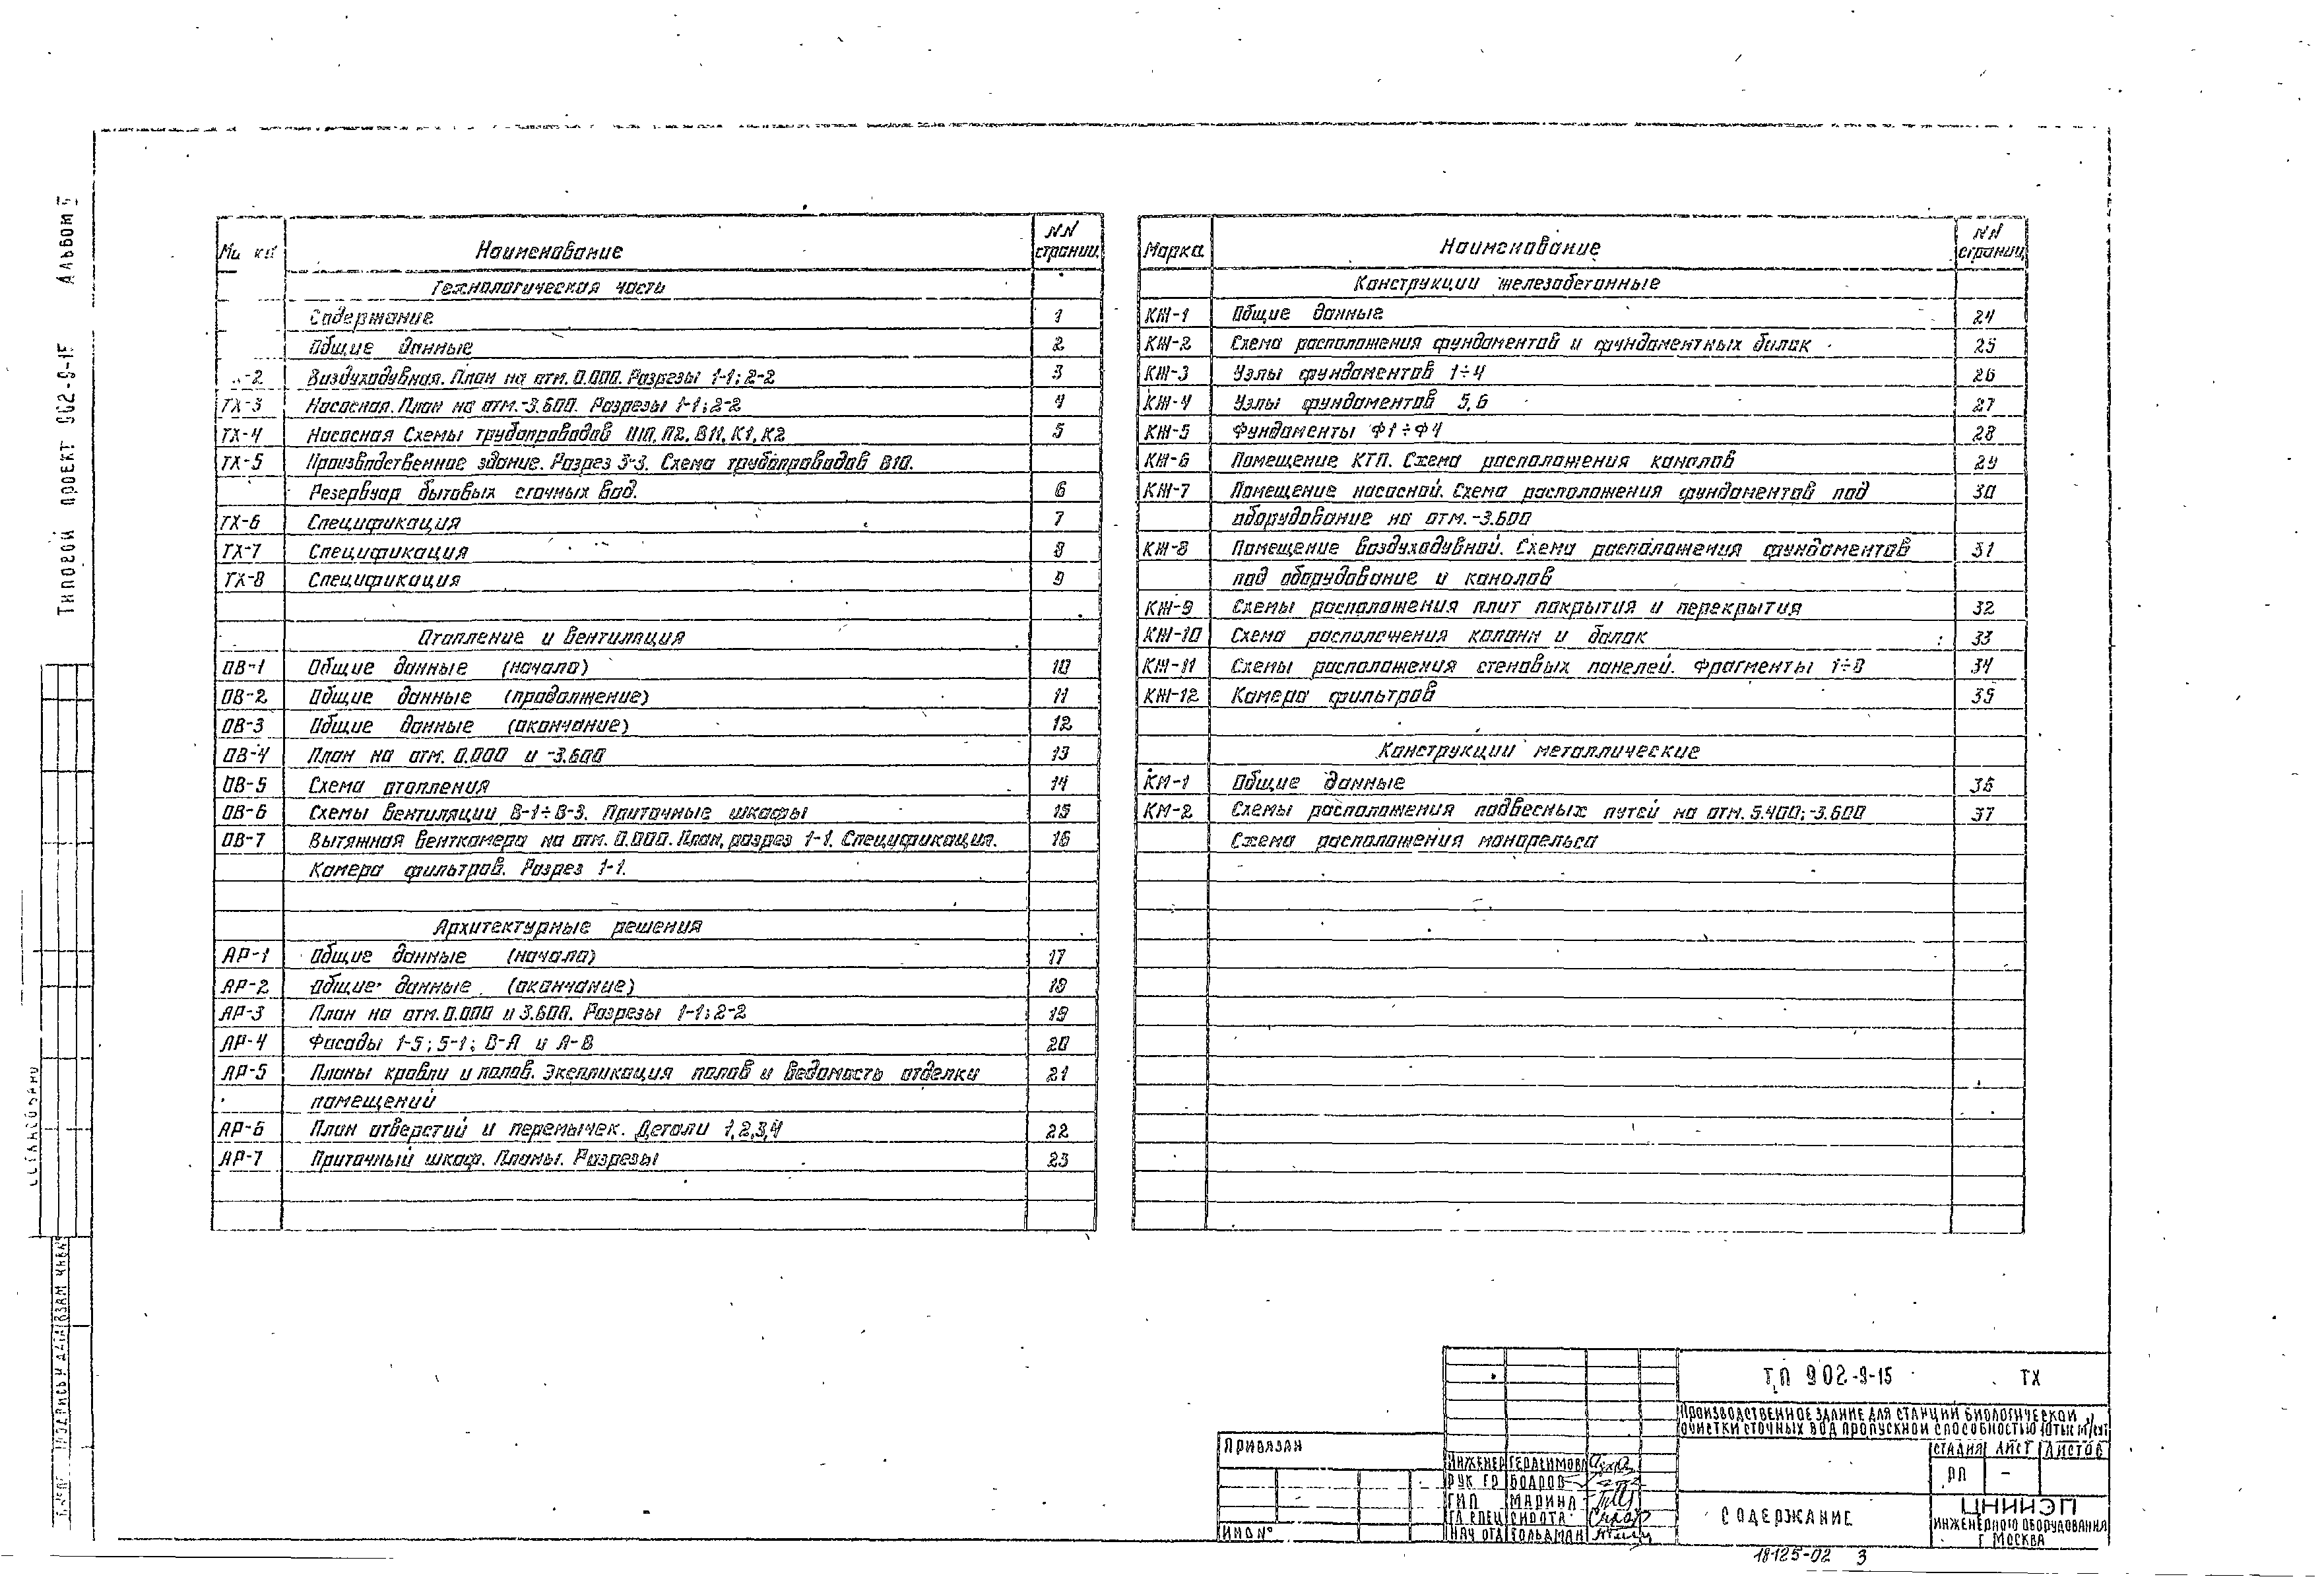 Альбом
Типовой проект 902-9-15
Наименование
NN
страниц
Технологическая часть
Содержание 1
Общие данные 2
-2 Воздуходувная. План на отм. 0.000. Разрезы 1-1; 2-2 3
ТХ-3 Насосная. План на отм. -3.600. Разрезы 1-1; 2-2 4
ТХ-4 Насосная Схемы трубопроводов П2, В11, К1, К2 5
ТХ-5 Производственное здание. Разрез 3-3. Схема трубопроводов В10.
Резервуар бытовых сточных вод. 6
ТХ-6 Спецификация 7
ТХ-7 Спецификация 8
ТХ-8 Спецификация 9
Отопление и вентиляция
ОВ-1 Общие данные (начало) 10
ОВ-2 Общие данные (продолжение) 11
ОВ-3 Общие данные (окончание) 12
ОВ-4 План на отм. 0.000 и -3.600 13
ОВ-5 Схема отопления 14
ОВ-6 Схемы вентиляции В-1÷В-3. Приточные шкафы 15
ОВ-7 Вытяжная венткамера на отм. 0.000. План, разрез 1-1. Спецификация. 16
Камера фильтров. Разрез 1-1.
Архитектурные решения
АР-1 Общие данные (начало) 17
АР-2 Общие данные (окончание) 18
АР-3 План на отм. 0.000 и 3.600. Разрезы 1-1; 2-2 19
АР-4 Фасады 1-5; 5-1; В-А и А-В 20
АР-5 Планы кровли и полов. Экспликация полов и ведомость отделки 21
помещений
АР-6 План отверстий и перемычек. Детали 1,2,3,4 22
АР-7 Приточный шкаф. Планы. Разрезы 23
Марка Наименование
NN
страниц
Конструкции железобетонные
КЖ-1 Общие данные 24
КЖ-2 Схема расположения фундаментов и фундаментных балок 25
КЖ-3 Узлы фундаментов 1÷4 26
КЖ-4 Узлы фундаментов 5,6 27
КЖ-5 Фундаменты Ф1÷Ф4 28
КЖ-6 Помещение КТП. Схема расположения каналов 29
КЖ-7 Помещение насосной. Схема расположения фундаментов под 30
оборудование на отм. -3.600
КЖ-8 Помещение воздуходувной. Схема расположения фундаментов 31
под оборудование и каналов
КЖ-9 Схемы расположения плит покрытия и перекрытия 32
КЖ-10 Схема расположения колонн и балок 33
КЖ-11 Схемы расположения стеновых панелей. Фрагменты 1÷8 34
КЖ-12 Камера фильтров 35
Конструкции металлические
КМ-1 Общие данные 36
КМ-2 Схемы расположения подвесных путей на отм. 5.400; -3.600 37
Схема расположения монорельса
ПОДПИСЬ И ДАТА ВЗАМ ИНВ №
ТП 902-9-15 ТХ
ПРОИЗВОДСТВЕННОЕ ЗДАНИЕ ДЛЯ СТАНЦИЙ БИОЛОГИЧЕСКОЙ
ОЧИСТКИ СТОЧНЫХ ВОД ПРОПУСКНОЙ СПОСОБНОСТЬЮ 10ТЫС М³/СУТ
СТАДИЯ ЛИСТ ЛИСТОВ
РП -
СОДЕРЖАНИЕ
ЦНИИЭП
ИНЖЕНЕРНОГО ОБОРУДОВАНИЯ
Г МОСКВА
ПРИВЯЗАН
ИНВ №
ИНЖЕНЕР ГЕРАСИМОВА
РУК ГР БОДРОВ
ГИП МАРИНА
ГЛ СПЕЦ СИРОТА
НАЧ ОТД ГОЛЬДМАН
18125-02 3